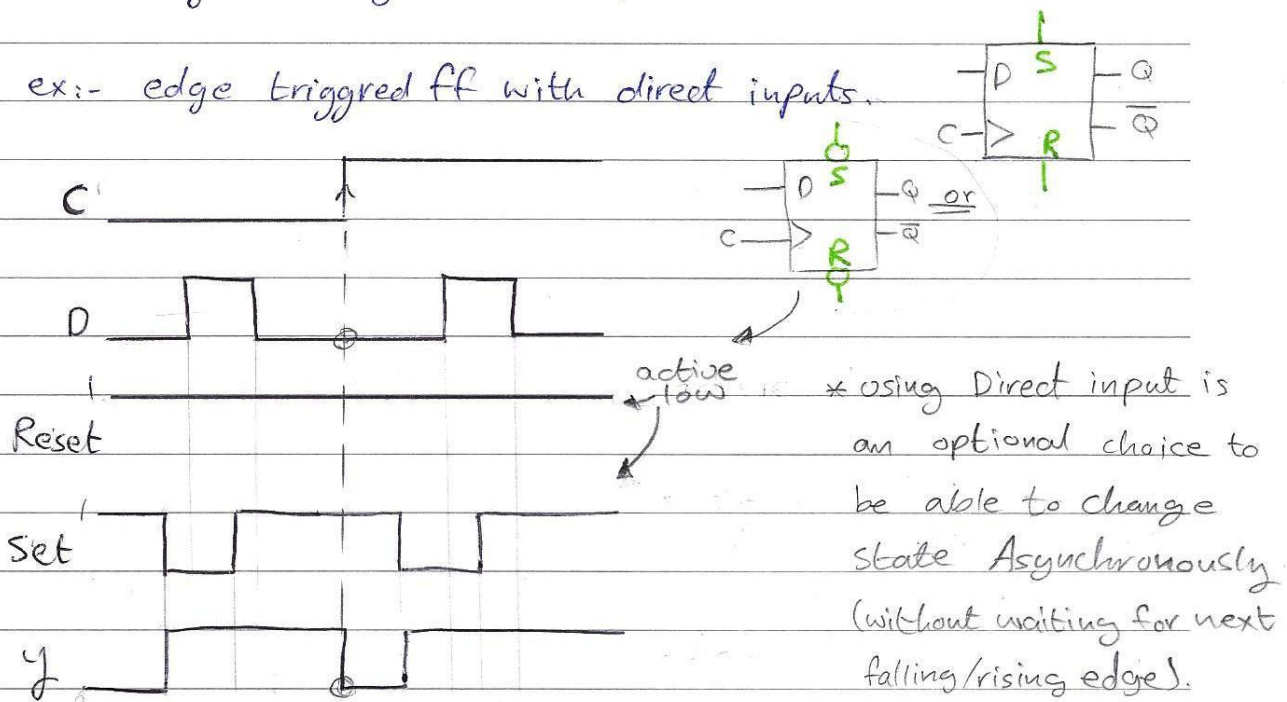 ex:- edge triggred ff with direct inputs.
D S Q
C R Q̅
C
D S Q or
C R Q̅
D
active low
1
Reset
1
Set
y
* Using Direct input is
an optional choice to
be able to change
state Asynchronously
(without waiting for next
falling/rising edge).